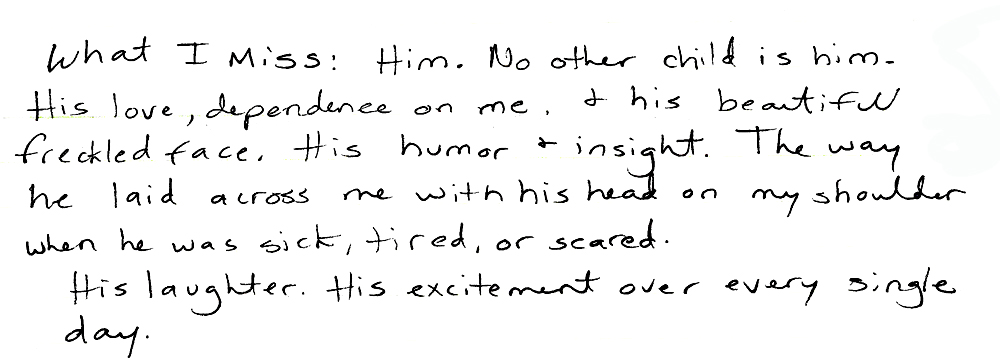 What I Miss: Him. No other child is him.
His love, dependence on me, & his beautiful
freckled face. His humor & insight. The way
he laid across me with his head on my shoulder
when he was sick, tired, or scared.
His laughter. His excitement over every single
day.